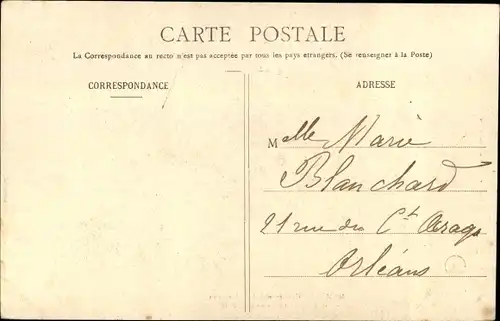 CARTE POSTALE
La Correspondance au recto n'est pas acceptée par tous les pays étrangers. (Se renseigner à la Poste)
CORRESPONDANCE
ADRESSE
Melle Marie
Blanchard
21 rue du Ct Arago
Orléans